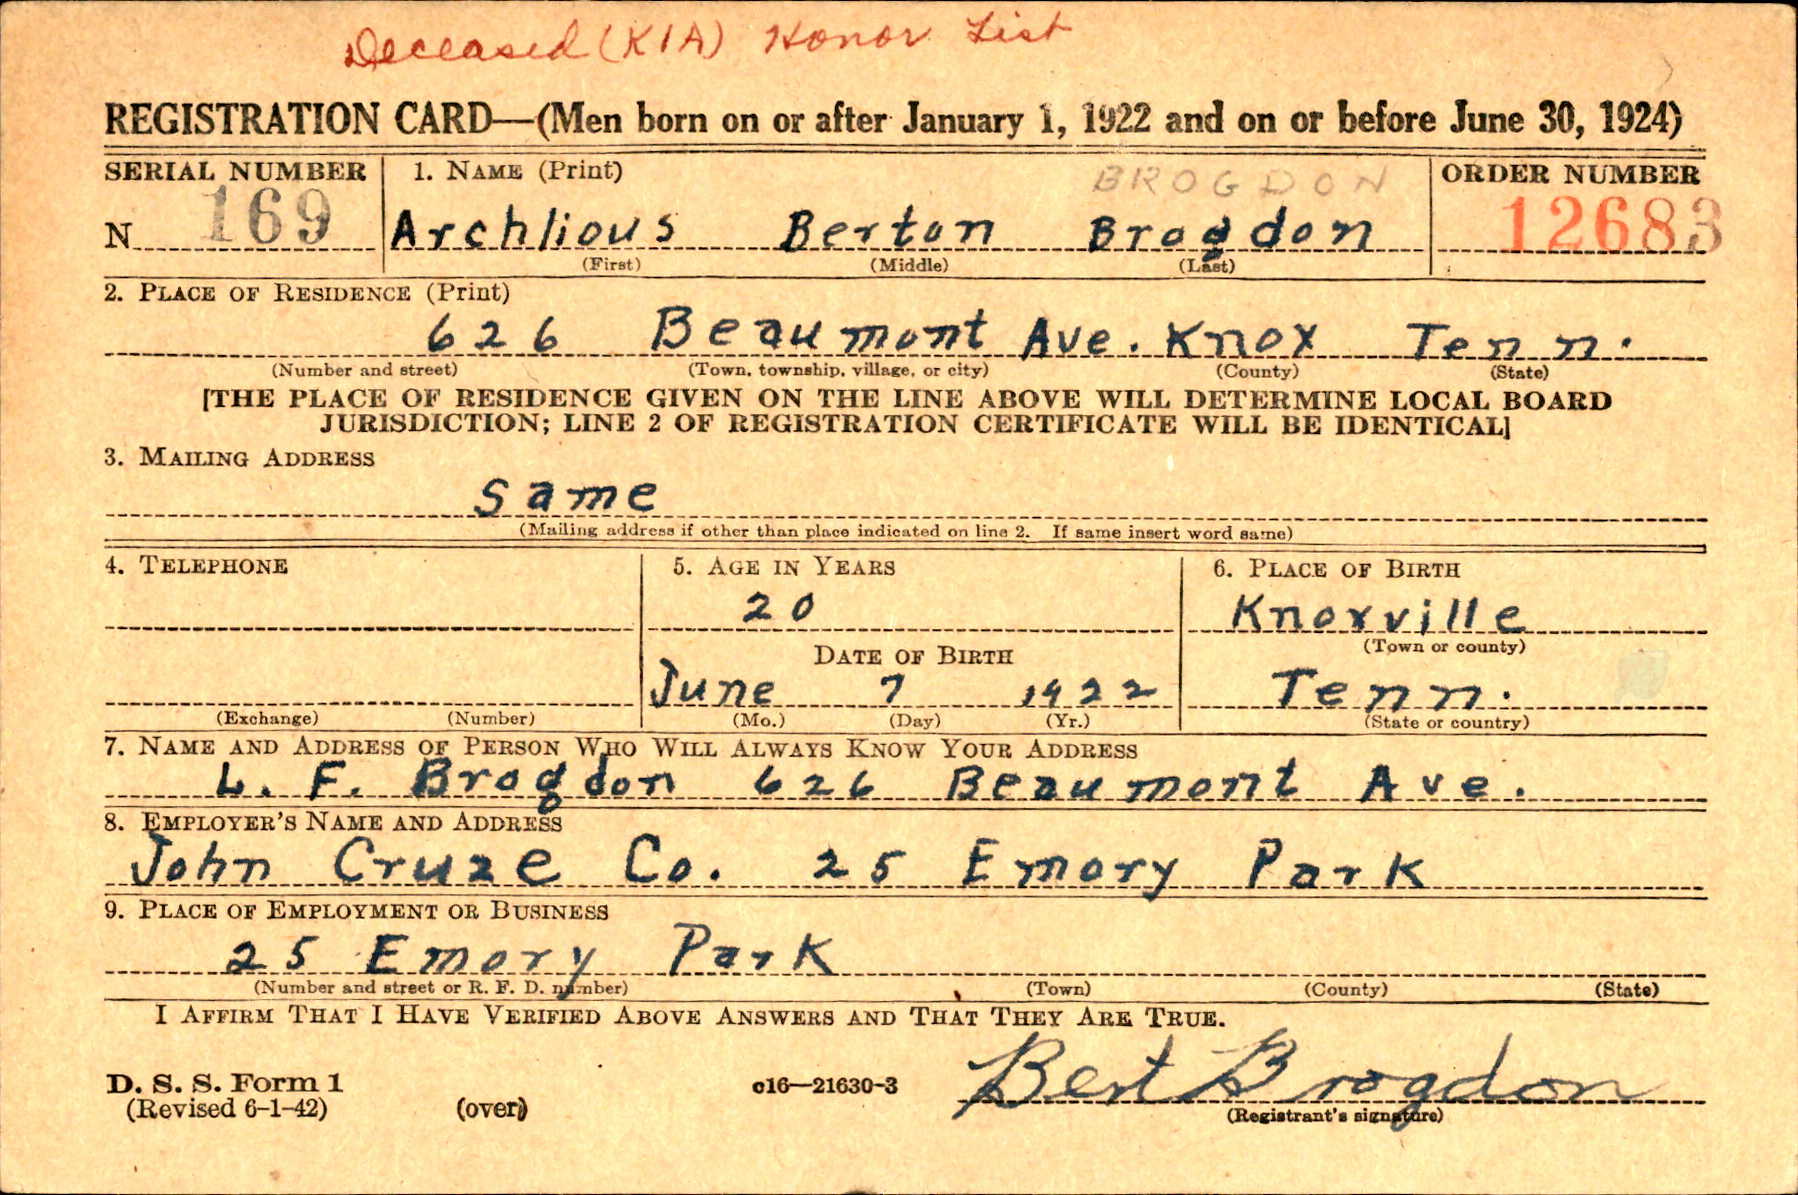 Deceased (KIA) Honor List
REGISTRATION CARD—(Men born on or after January 1, 1922 and on or before June 30, 1924)
SERIAL NUMBER 1. NAME (Print) BROGDON ORDER NUMBER
N 169 Archlious Berton Brogdon 12683
(First) (Middle) (Last)
2. PLACE OF RESIDENCE (Print)
626 Beaumont Ave. Knox Tenn.
(Number and street) (Town, township, village, or city) (County) (State)
[THE PLACE OF RESIDENCE GIVEN ON THE LINE ABOVE WILL DETERMINE LOCAL BOARD
JURISDICTION; LINE 2 OF REGISTRATION CERTIFICATE WILL BE IDENTICAL]
3. MAILING ADDRESS
Same
(Mailing address if other than place indicated on line 2. If same insert word same)
4. TELEPHONE 5. AGE IN YEARS 6. PLACE OF BIRTH
20 Knoxville
(Town or county)
DATE OF BIRTH
June 7 1922 Tenn.
(Exchange) (Number) (Mo.) (Day) (Yr.) (State or country)
7. NAME AND ADDRESS OF PERSON WHO WILL ALWAYS KNOW YOUR ADDRESS
L. F. Brogdon 626 Beaumont Ave.
8. EMPLOYER'S NAME AND ADDRESS
John Cruze Co. 25 Emory Park
9. PLACE OF EMPLOYMENT OR BUSINESS
25 Emory Park
(Number and street or R. F. D. number) (Town) (County) (State)
I AFFIRM THAT I HAVE VERIFIED ABOVE ANSWERS AND THAT THEY ARE TRUE.
D. S. S. Form 1 c16—21630-3 Bert Brogdon
(Revised 6-1-42) (over) (Registrant's signature)